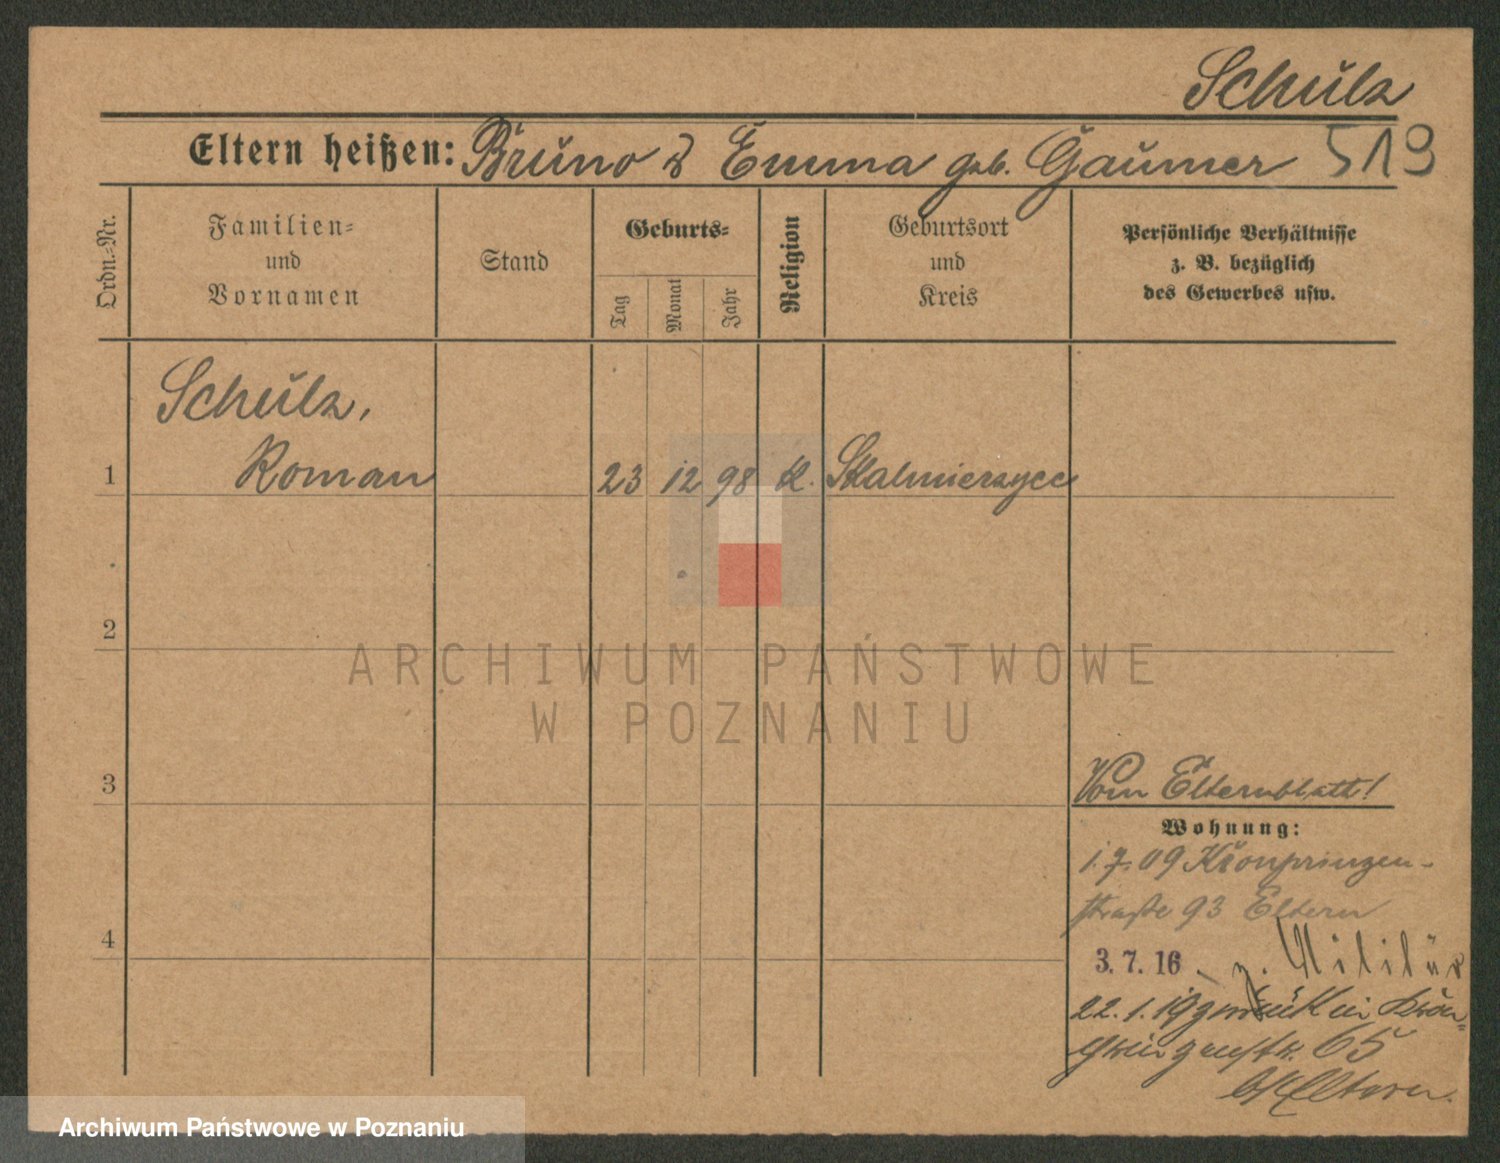 Schulz
Eltern heißen: Bruno & Emma geb. Gaumer 519
Ordn.-Nr.
Familien-
und
Vornamen
Stand
Geburts-
Tag
Monat
Jahr
Religion
Geburtsort
und
Kreis
Persönliche Verhältnisse
z. B. bezüglich
des Gewerbes usw.
Schulz,
1 Roman 23 12 98 K. Skalmierzyce
2
ARCHIWUM PAŃSTWOWE
W POZNANIU
3
Vom Elternblatt!
Wohnung:
1.7.09 Kronprinzen-
straße 93 Eltern
4
3.7.16 - z. Militär
22.1.19 zurück in Kron-
prinzenstr. 65
b/Eltern.
Archiwum Państwowe w Poznaniu